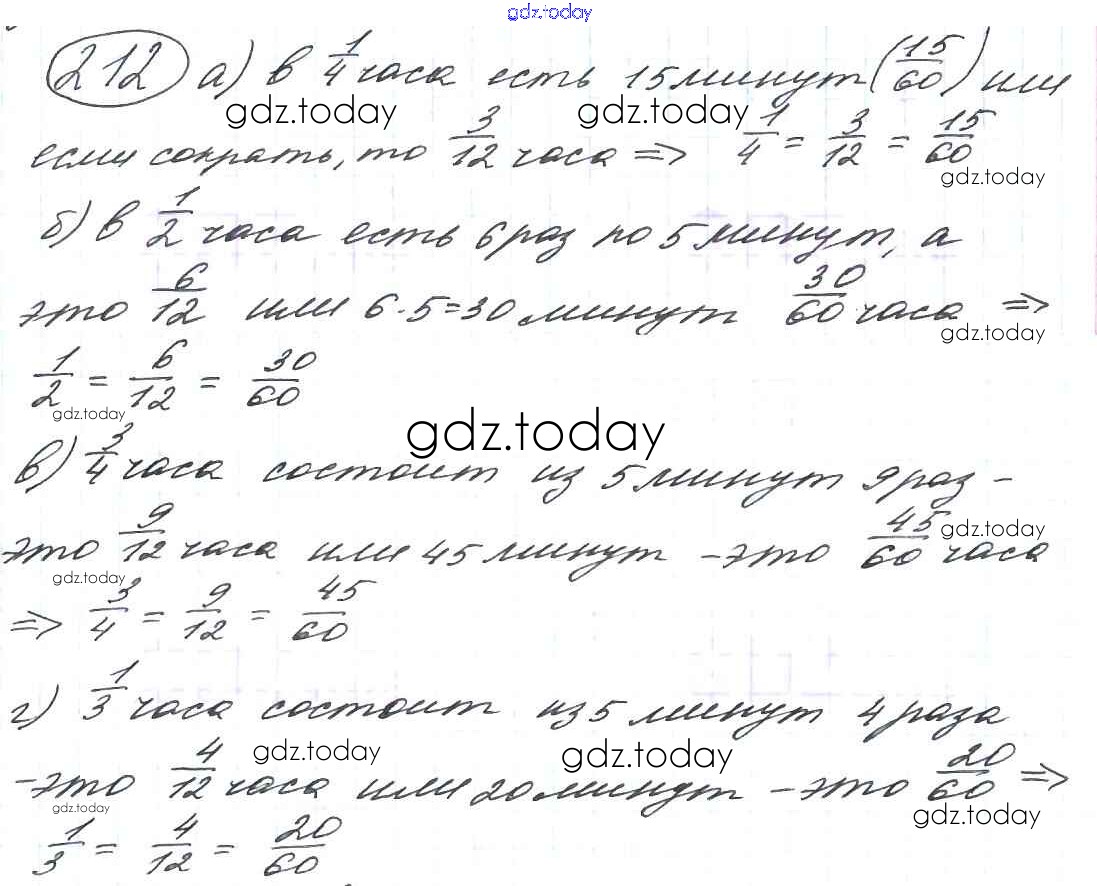 gdz.today
212 а) в 1/4 часа есть 15 минут (15/60) или
gdz.today gdz.today
если сократь, то 3/12 часа => 1/4 = 3/12 = 15/60
gdz.today
б) в 1/2 часа есть 6 раз по 5 минут, а
это 6/12 или 6·5=30 минут 30/60 часа =>
gdz.today
1/2 = 6/12 = 30/60
gdz.today
gdz.today
в) 3/4 часа состоит из 5 минут 9 раз -
это 9/12 часа или 45 минут - это 45/60 часа
gdz.today
gdz.today
=> 3/4 = 9/12 = 45/60
г) 1/3 часа состоит из 5 минут 4 раза
gdz.today gdz.today
- это 4/12 часа или 20 минут - это 20/60 =>
gdz.today gdz.today
1/3 = 4/12 = 20/60